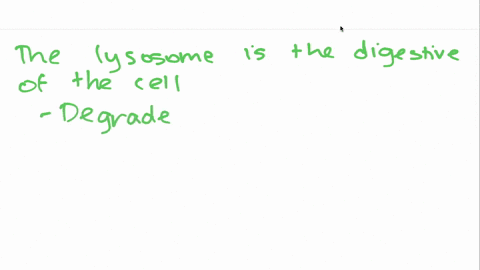 The lysosome is the digestive
of the cell
- Degrade